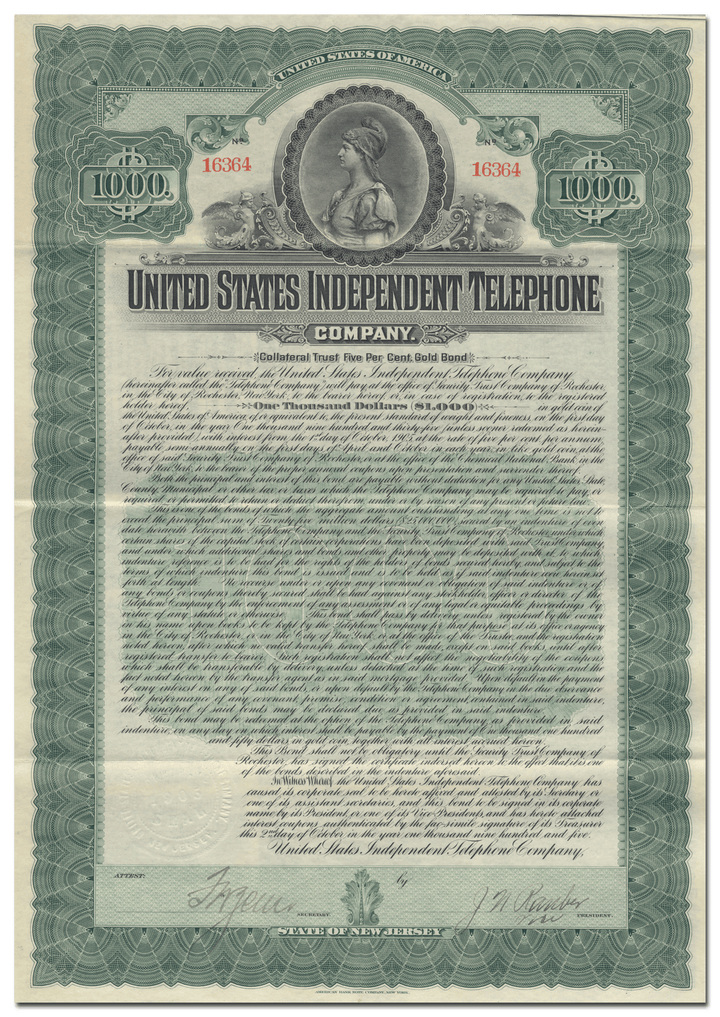 UNITED STATES OF AMERICA
No No
16364 16364
1000. 1000.
UNITED STATES INDEPENDENT TELEPHONE
COMPANY.
Collateral Trust Five Per Cent. Gold Bond
For value received, the United States Independent Telephone Company,
(hereinafter called the Telephone Company) will pay at the office of Security Trust Company of Rochester,
in the City of Rochester, New York, to the bearer hereof, or, in case of registration, to the registered
holder hereof, One Thousand Dollars ($1,000) in gold coin of
the United States of America, of or equivalent to, the present standard of weight and fineness, on the first day
of October, in the year One thousand nine hundred and thirty five (unless sooner redeemed as herein-
after provided) with interest from the 1st day of October, 1905, at the rate of five per cent per annum,
payable semi-annually on the first days of April and October in each year, in like gold coin, at the
office of said Security Trust Company of Rochester, and the office of the Chemical National Bank in the
City of New York, to the bearer of the proper annual coupon upon presentation and surrender thereof.
Both the principal and interest of this bond are payable without deduction for any United States, State,
County, Municipal or other tax or taxes which the Telephone Company may be required to pay, or
required or permitted to retain or deduct therefrom, under or by reason of any present or future law.
This is one of the bonds of which the aggregate amount outstanding at any one time is not to
exceed the principal sum of Twenty five million dollars ($25,000,000) secured by an indenture of even
date herewith between the Telephone Company and the Security Trust Company of Rochester, under which
certain shares of the capital stock of certain corporations have been deposited with said Trust Company
and under which additional shares and bonds and other property may be deposited with it, to which
indenture reference is to be had for the rights of the holders of bonds secured hereby and subject to the
terms of which indenture this bond is issued and is to be held as if said indenture were herein set
forth at length. No recourse under or upon any covenant or obligation of said indenture or of
any bonds or coupons thereby secured shall be had against any stockholder, officer or director of the
Telephone Company by the enforcement of any assessment or of any legal or equitable proceedings by
virtue of any statute or otherwise. This bond shall pass by delivery unless registered by the owner
in his name upon books to be kept by the Telephone Company for that purpose at its office or agency
in the City of Rochester, or in the City of New York, or at the office of the Trustee, and the registration
noted hereon, after which no valid transfer hereof shall be made, except on said books, until after
registered transfer to bearer. Such registration shall not affect the negotiability of the coupons
which shall be transferable by delivery unless detached at the time of such registration and the
fact noted hereon by the transfer agent as in said mortgage provided. Upon default in the payment
of any interest on any of said bonds, or upon default by the Telephone Company in the due observance
and performance of any covenant, promise, condition or agreement contained in said indenture,
the principal of said bonds may be declared due as provided in said indenture.
This bond may be redeemed at the option of the Telephone Company as provided in said
indenture, on any day on which interest shall be payable by the payment of One thousand one hundred
and fifty dollars in gold coin, together with all interest accrued hereon.
This Bond shall not be obligatory until the Security Trust Company of
Rochester, has signed the certificate indorsed hereon to the effect that it is one
of the bonds described in the indenture aforesaid.
In Witness Whereof, the United States Independent Telephone Company has
caused its corporate seal to be hereto affixed and attested by its Secretary or
one of its assistant secretaries, and this bond to be signed in its corporate
name by its President, or one of its Vice-Presidents, and has hereto attached
interest coupons authenticated by the fac-simile signature of its Treasurer
this 2nd day of October in the year one thousand nine hundred and five.
United States Independent Telephone Company,
ATTEST: by
SECRETARY. PRESIDENT.
STATE OF NEW JERSEY
AMERICAN BANK NOTE COMPANY, NEW YORK.